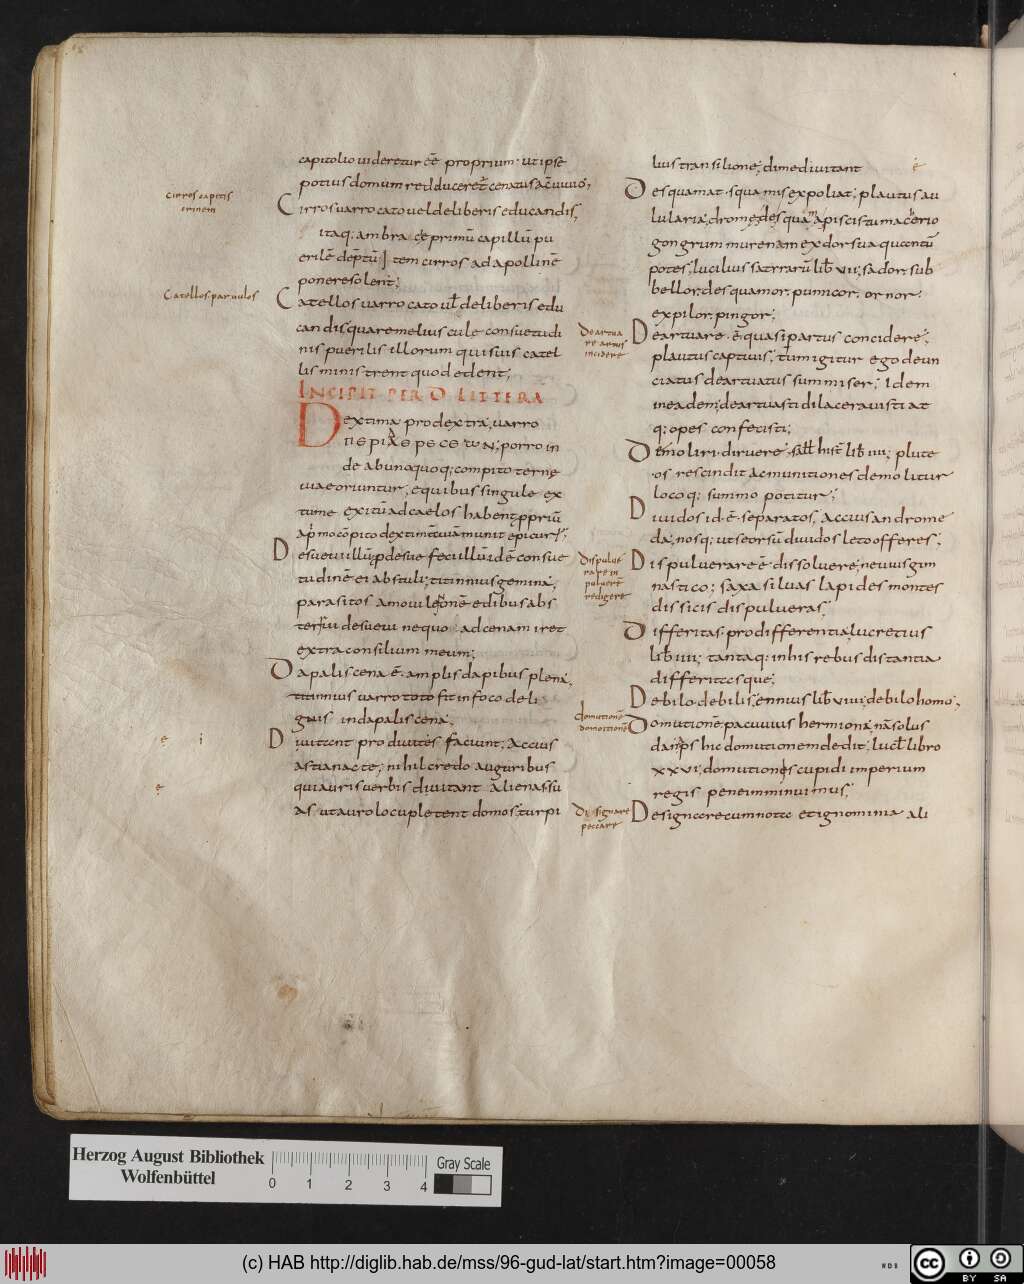 capitolio uideretur eē proprium· ut ipse
potius domum redduceret̄ cenatus
Cirros capitis
crinem
Cirros uarro cato uel de liberis educandis,
itaq; ambrace primū capillū pu
erilē dēptū; Item cirros ad apollinē
ponere solent;
Catellos paruulos
Catellos uarro cato uł de liberis edu
candis quare melius cule consuetudi
nis puerilis illorum qui suis catel
lis ministrent quod edent;
INCIPIT PER D LITTERA
Dextima pro dextra, uarro
porro in
de ab unoquoq; compito terne
uiae oriuntur, e quibus singule ex
tume exitū ad caelos habent ppriū
Desueui ullū desuefec idē consue
tudinē ei abstuli; titinnius gemina,
parasitos amoui lenonē edibus abs
terrui desueui nequo ad cenam iret
extra consilium meum;
Dapalis cena ē amplis dapibus plena,
titinnius uarro toto fit in foco deli
guis in dapalis cena,
Diuitent pro diuites faciunt; Accius
astianacte; nihil credo auguribus
qui auris uerbis diuitant alienas su
as ut auro locupletent domos; turpi
lius transilione; dime diuitant
Desquamat· squamis expoliat; plautus au
lularia, dromo desquama piscis tu macerio
gongrum murenam exdorsua quantū
potes; lucilius satrrarū lib̄ VII; sador· sub
bellor; desquamor· pumicor· ornor·
expilor· pingor;
Deartua
re artus
incidere
Deartuare· ē quasi partus concidere;
plautus captiuis; tum igitur ego deun
ciatus deartuatus sum miser; Idem
in eadem; deartuasti dilacerauisti at
q; opes confecisti;
Demoliri· diruere· sall hist̄ lib̄ IIII; plute
os rescindit ac munitiones demolitur
locoq; summo potitur;
Diuidos id· ē· separatos, Accius androme
da, nosq; ut seorsū diuidos leto offeres;
Dispulue
rare in
puluerē
redigere
Dispulverare ē dissoluere, neuius gim
nastico; saxa siluas lapides montes
dissicis dispulueras;
Differitas· pro differentia, lucretius
lib̄ IIII; tantaq; in his rebus distantia
differitasque;
Debilo· debilis; ennius lib̄ VIIII; debilo homo;
domutionē
domoitionē
Domutionē pacuuius hermiona, nā solus
danips hic domutionem dedit; lucł libro
XXVI; domutiones cupidi imperium
regis pene imminuimus;
Designare
peccare
Designare cum nota et ignominia ali
Herzog August Bibliothek
Wolfenbüttel
Gray Scale
0 1 2 3 4
(c) HAB http://diglib.hab.de/mss/96-gud-lat/start.htm?image=00058
WDB
cc BY SA